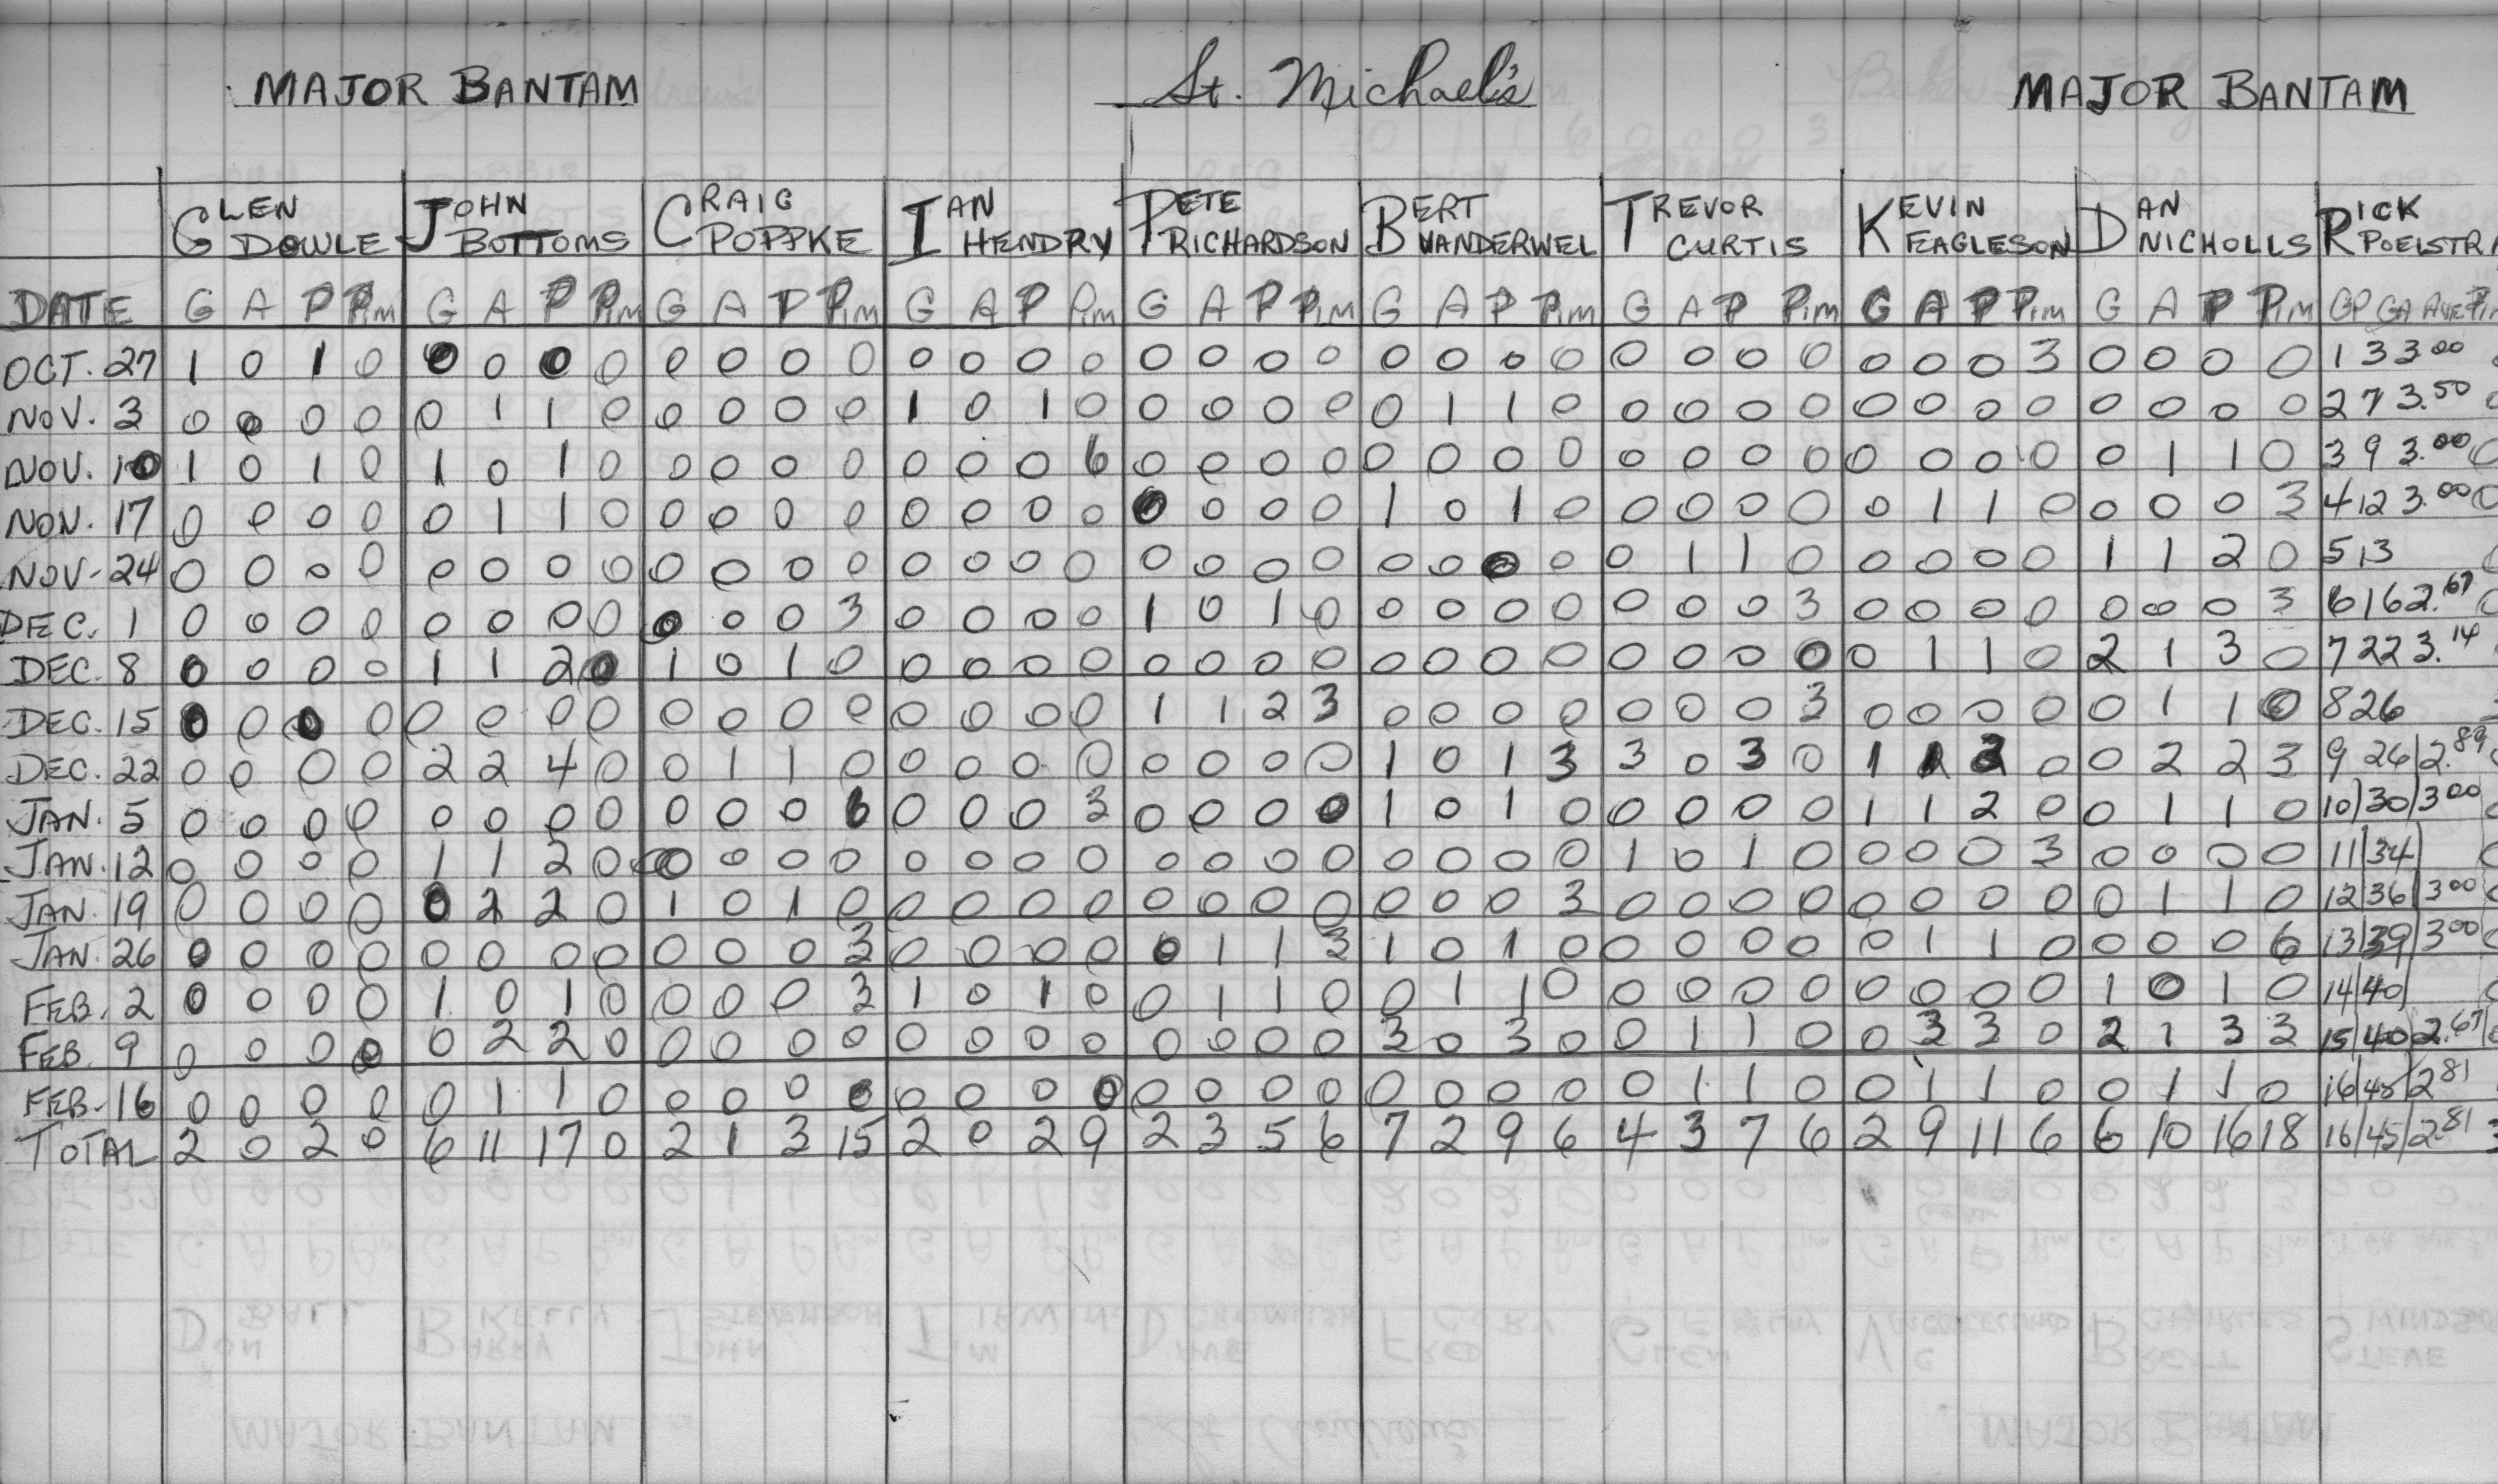 MAJOR BANTAM St. Michael's MAJOR BANTAM
GLEN DOWLE JOHN BOTTOMS CRAIG POPPKE IAN HENDRY PETE RICHARDSON BERT VANDERWEL TREVOR CURTIS KEVIN EAGLESON DAN NICHOLLS RICK POELSTRA
DATE G A P PIM G A P PIM G A P PIM G A P PIM G A P PIM G A P PIM G A P PIM G A P PIM G A P PIM GP GA AVE PIM
OCT. 27 1 0 1 0 0 0 0 0 0 0 0 0 0 0 0 0 0 0 0 0 0 0 0 0 0 0 0 0 0 0 0 3 0 0 0 0 1 3 3.00
NOV. 3 0 0 0 0 0 1 1 0 0 0 0 0 1 0 1 0 0 0 0 0 0 1 1 0 0 0 0 0 0 0 0 0 0 0 0 0 2 7 3.50
NOV. 10 1 0 1 0 1 0 1 0 0 0 0 0 0 0 0 6 0 0 0 0 0 0 0 0 0 0 0 0 0 0 0 0 0 1 1 0 3 9 3.00 0
NON. 17 0 0 0 0 0 1 1 0 0 0 0 0 0 0 0 0 0 0 0 0 1 0 1 0 0 0 0 0 0 1 1 0 0 0 0 3 4 12 3.00 0
NOV-24 0 0 0 0 0 0 0 0 0 0 0 0 0 0 0 0 0 0 0 0 0 0 0 0 0 1 1 0 0 0 0 0 1 1 2 0 5 13
DEC. 1 0 0 0 0 0 0 0 0 0 0 0 3 0 0 0 0 1 0 1 0 0 0 0 0 0 0 0 3 0 0 0 0 0 0 0 3 6 16 2.67 0
DEC. 8 0 0 0 0 1 1 2 0 1 0 1 0 0 0 0 0 0 0 0 0 0 0 0 0 0 0 0 0 0 1 1 0 2 1 3 0 7 22 3.14
DEC. 15 0 0 0 0 0 0 0 0 0 0 0 0 0 0 0 0 1 1 2 3 0 0 0 0 0 0 0 3 0 0 0 0 0 1 1 0 8 26
DEC. 22 0 0 0 0 2 2 4 0 0 1 1 0 0 0 0 0 0 0 0 0 1 0 1 3 3 0 3 0 1 1 2 0 0 2 2 3 9 26 2.89
JAN. 5 0 0 0 0 0 0 0 0 0 0 0 6 0 0 0 3 0 0 0 0 1 0 1 0 0 0 0 0 1 1 2 0 0 1 1 0 10 30 3.00
JAN. 12 0 0 0 0 1 1 2 0 0 0 0 0 0 0 0 0 0 0 0 0 0 0 0 0 1 0 1 0 0 0 0 3 0 0 0 0 11 34
JAN. 19 0 0 0 0 0 2 2 0 1 0 1 0 0 0 0 0 0 0 0 0 0 0 0 3 0 0 0 0 0 0 0 0 0 1 1 0 12 36 3.00
JAN. 26 0 0 0 0 0 0 0 0 0 0 0 3 0 0 0 0 0 1 1 3 1 0 1 0 0 0 0 0 0 1 1 0 0 0 0 6 13 39 3.00
FEB. 2 0 0 0 0 1 0 1 0 0 0 0 3 1 0 1 0 0 1 1 0 0 1 1 0 0 0 0 0 0 0 0 0 1 0 1 0 14 40
FEB. 9 0 0 0 0 0 2 2 0 0 0 0 0 0 0 0 0 0 0 0 0 3 0 3 0 0 1 1 0 0 3 3 0 2 1 3 3 15 40 2.67
FEB-16 0 0 0 0 0 1 1 0 0 0 0 0 0 0 0 0 0 0 0 0 0 0 0 0 0 1 1 0 0 1 1 0 0 1 1 0 16 45 2.81
TOTAL 2 0 2 0 6 11 17 0 2 1 3 15 2 0 2 9 2 3 5 6 7 2 9 6 4 3 7 6 2 9 11 6 6 10 16 18 16 45 2.81 3